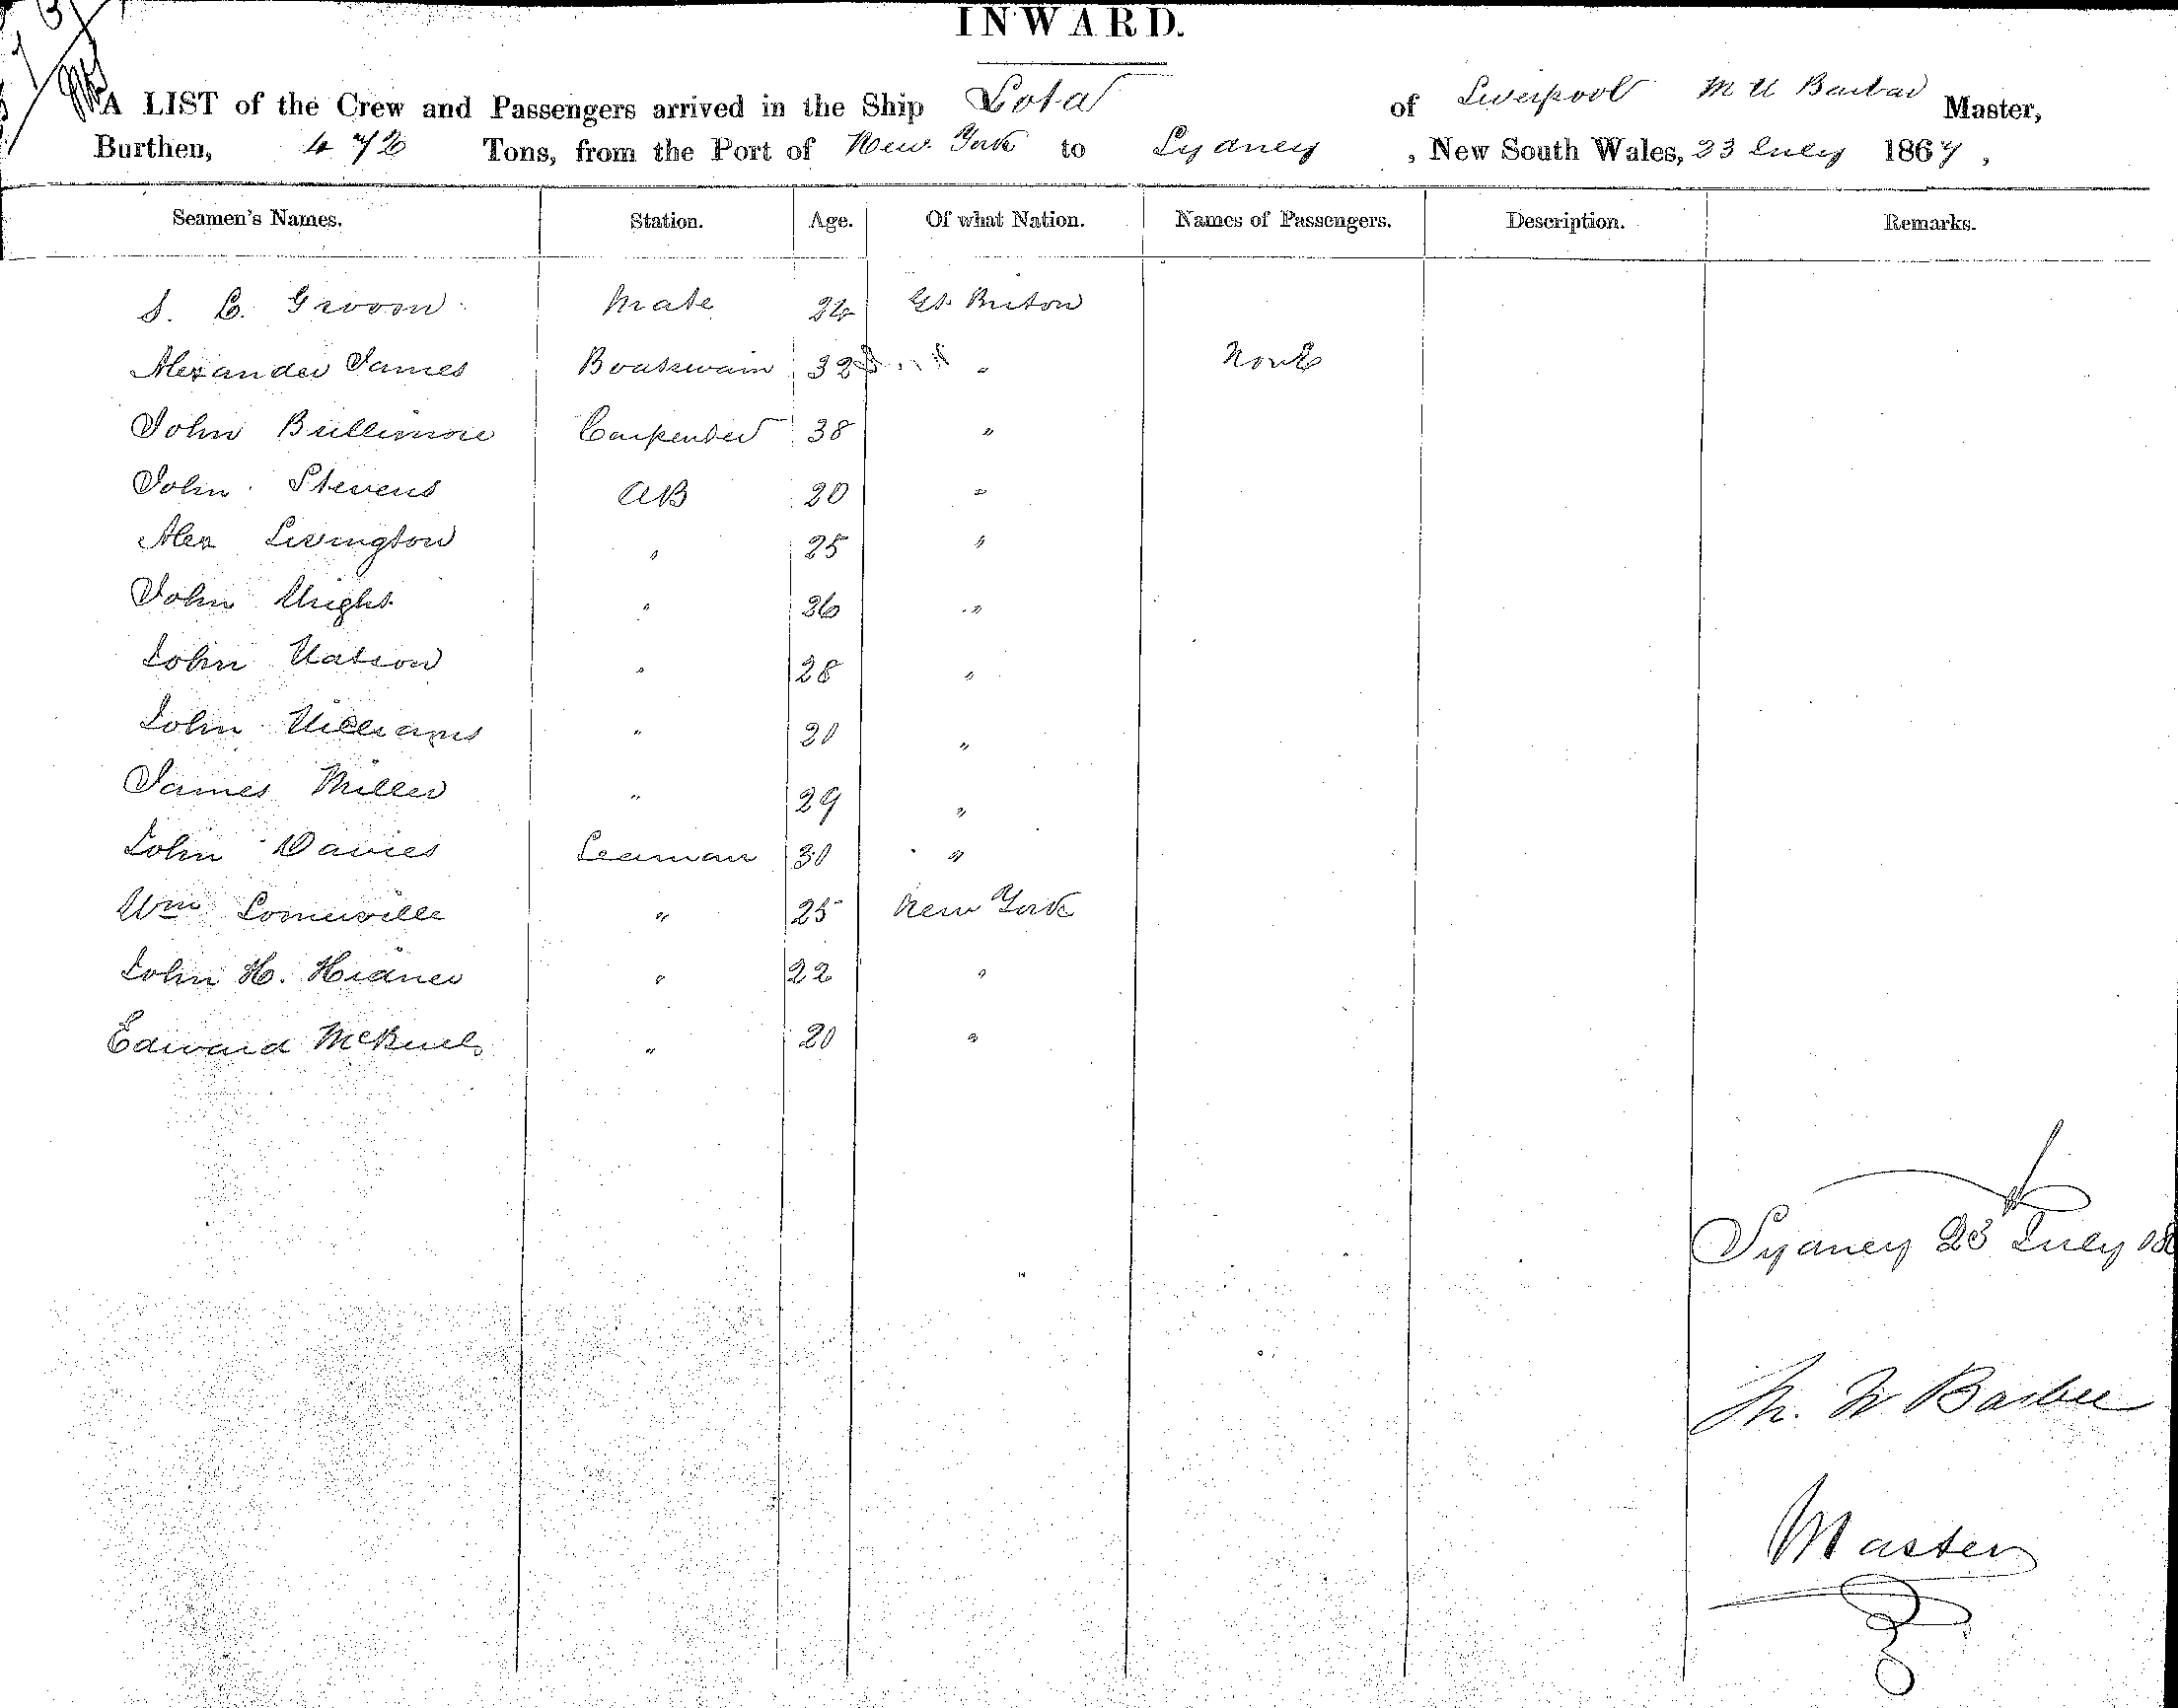 INWARD.
A LIST of the Crew and Passengers arrived in the Ship Lota of Liverpool M W Barber Master,
Burthen, Tons, from the Port of New York to Sydney, New South Wales, 23 July 1867,
Seamen's Names. Station. Age. Of what Nation. Names of Passengers. Description. Remarks.
Groom Mate 24 Gt. Briton
Alexander James Boatswain 32 " None
John Bullimore Carpenter 38 "
John Stevens AB 20 "
Alex Livington " 25 "
John Wright " 26 "
John Watson " 28 "
John Williams " 20 "
James Miller " 29 "
John Davies Seaman 30 "
Wm Somerville " 25 New York
John H. " 22 "
Edward " 20 "
Sydney 23 July 18
M. W Barber
Master